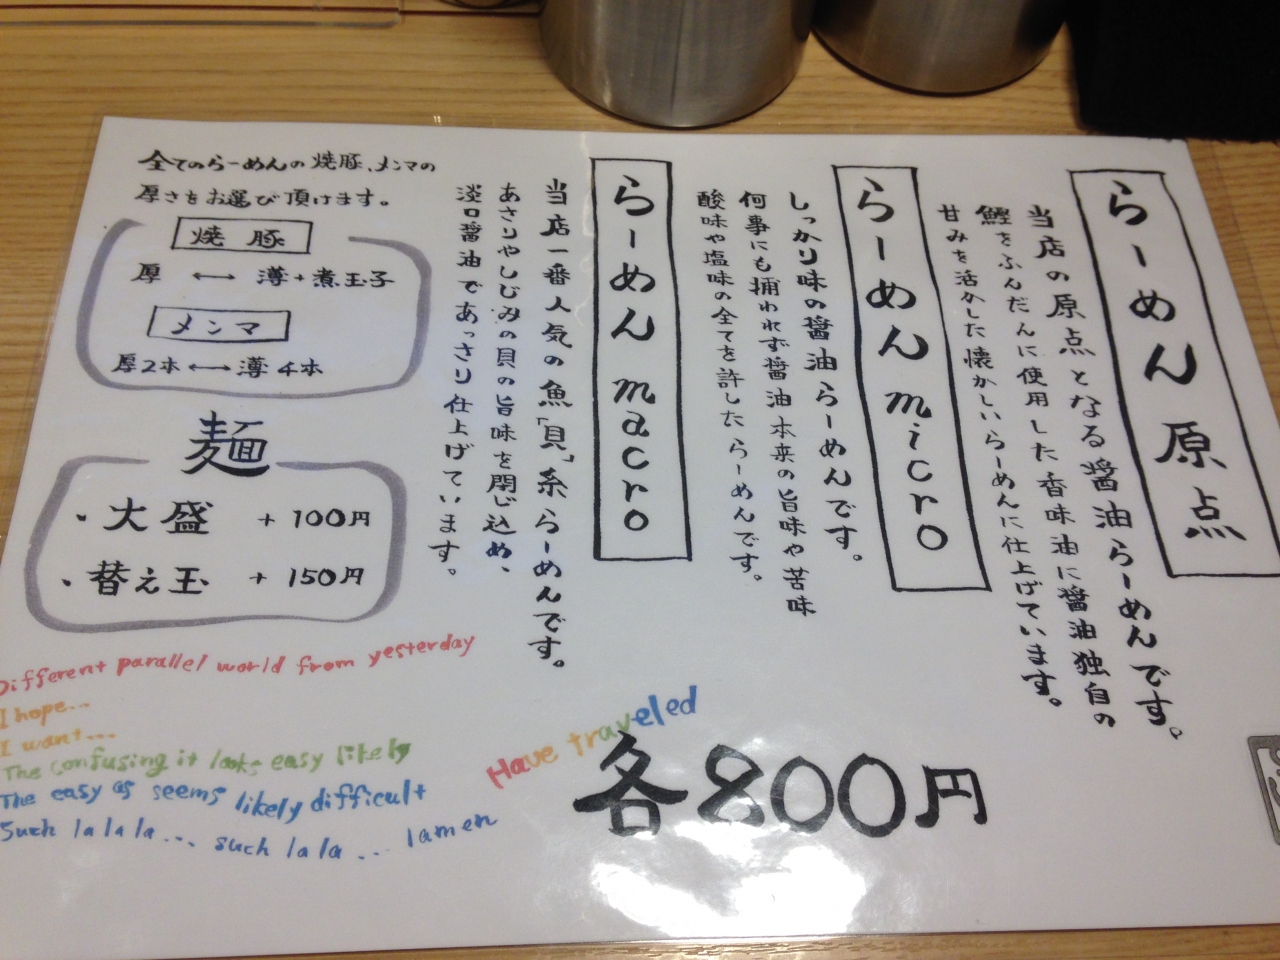 らーめん原点
当店の原点となる醤油らーめんです。
鰹をふんだんに使用した香味油に醤油独自の
甘みを活かした懐かしいらーめんに仕上げています。
らーめんmicro
しっかり味の醤油らーめんです。
何事にも捕われず醤油本来の旨味や苦味
酸味や塩味の全てを許したらーめんです。
らーめんmacro
当店一番人気の魚「貝」系らーめんです。
あさりやしじみの貝の旨味を閉じ込め、
淡口醤油であっさり仕上げています。
全てのらーめんの焼豚、メンマの
厚さをお選び頂けます。
焼豚
厚 ←→ 薄+煮玉子
メンマ
厚2本←→薄4本
麺
・大盛 +100円
・替え玉 +150円
Different parallel world from yesterday
I hope...
I want...
The confusing it looks easy likely
The easy as seems likely difficult
Such la la la... such la la ... lamen
Have traveled
各800円